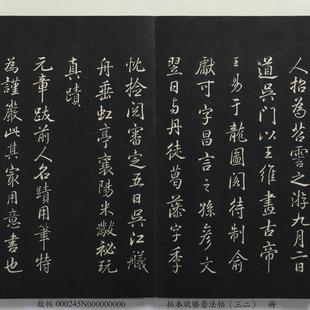 人招為苕霅之游九月二日
道吳門以王維畫古帝
王易于龍圖閣待制俞
獻可字昌言之孫彥文
翌日与丹徒葛藻字季
忱拾閱審定五日吳江艤
舟垂虹亭襄陽米黻祕玩
真蹟
元章跋前人名蹟用筆特
為謹嚴此其冣用意書也
故帖 000245N000000000
拓本敬勝齋法帖（三二） 冊